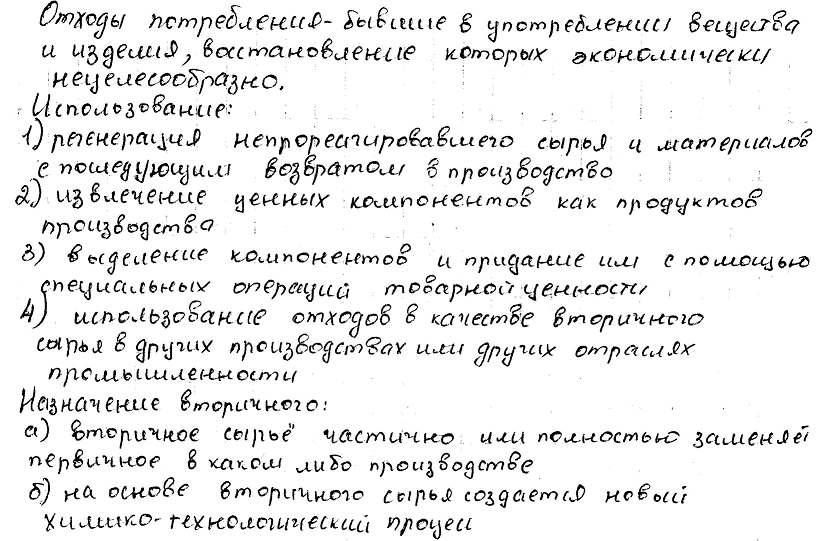 Отходы потребления- бывшие в употреблении вещества
и изделия, восстановление которых экономически
нецелесообразно.
Использование:
1) регенерация непрореагировавшего сырья и материалов
с последующим возвратом в производство
2) извлечение ценных компонентов как продуктов
производства
3) выделение компонентов и придание им с помощью
специальных операций товарной ценности
4) использование отходов в качестве вторичного
сырья в других производствах или других отраслях
промышленности
Назначение вторичного:
а) вторичное сырьё частично или полностью заменяет
первичное в каком либо производстве
б) на основе вторичного сырья создается новый
химико-технологический процесс